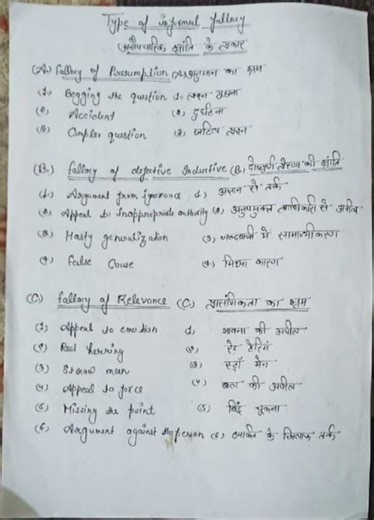 Type of informal fallacy
अनौपचारिक भ्रांति के प्रकार
(A.) Fallacy of Presumption (A) अनुमान का भ्रम
(1) Begging the question 1.
(2) Accident (2) दुर्घटना
(3) Complex question (3) जटिल प्रश्न
(B.) fallacy of defective Inductive (B) की भ्रांति
(1) Argument from ignorance (1) अज्ञान से तर्क
(2) Appeal to inappropriate authority (2) अनुपयुक्त से अपील
(3) Hasty generalization (3) जल्दबाजी में सामान्यीकरण
(4) False Couse (4) मिथ्या कारण
(C) fallacy of Relevance (C) प्रासंगिकता का भ्रम
(1) Appeal to emotion (1) भावना की अपील
(2) Red herring (2) रेड हेरिंग
(3) Straw man (3) स्ट्रॉ मैन
(4) Appeal to force (4) बल की अपील
(5) Missing the point (5) बिंदु चूकना
(6) Argument against the person (6) व्यक्ति के खिलाफ तर्क